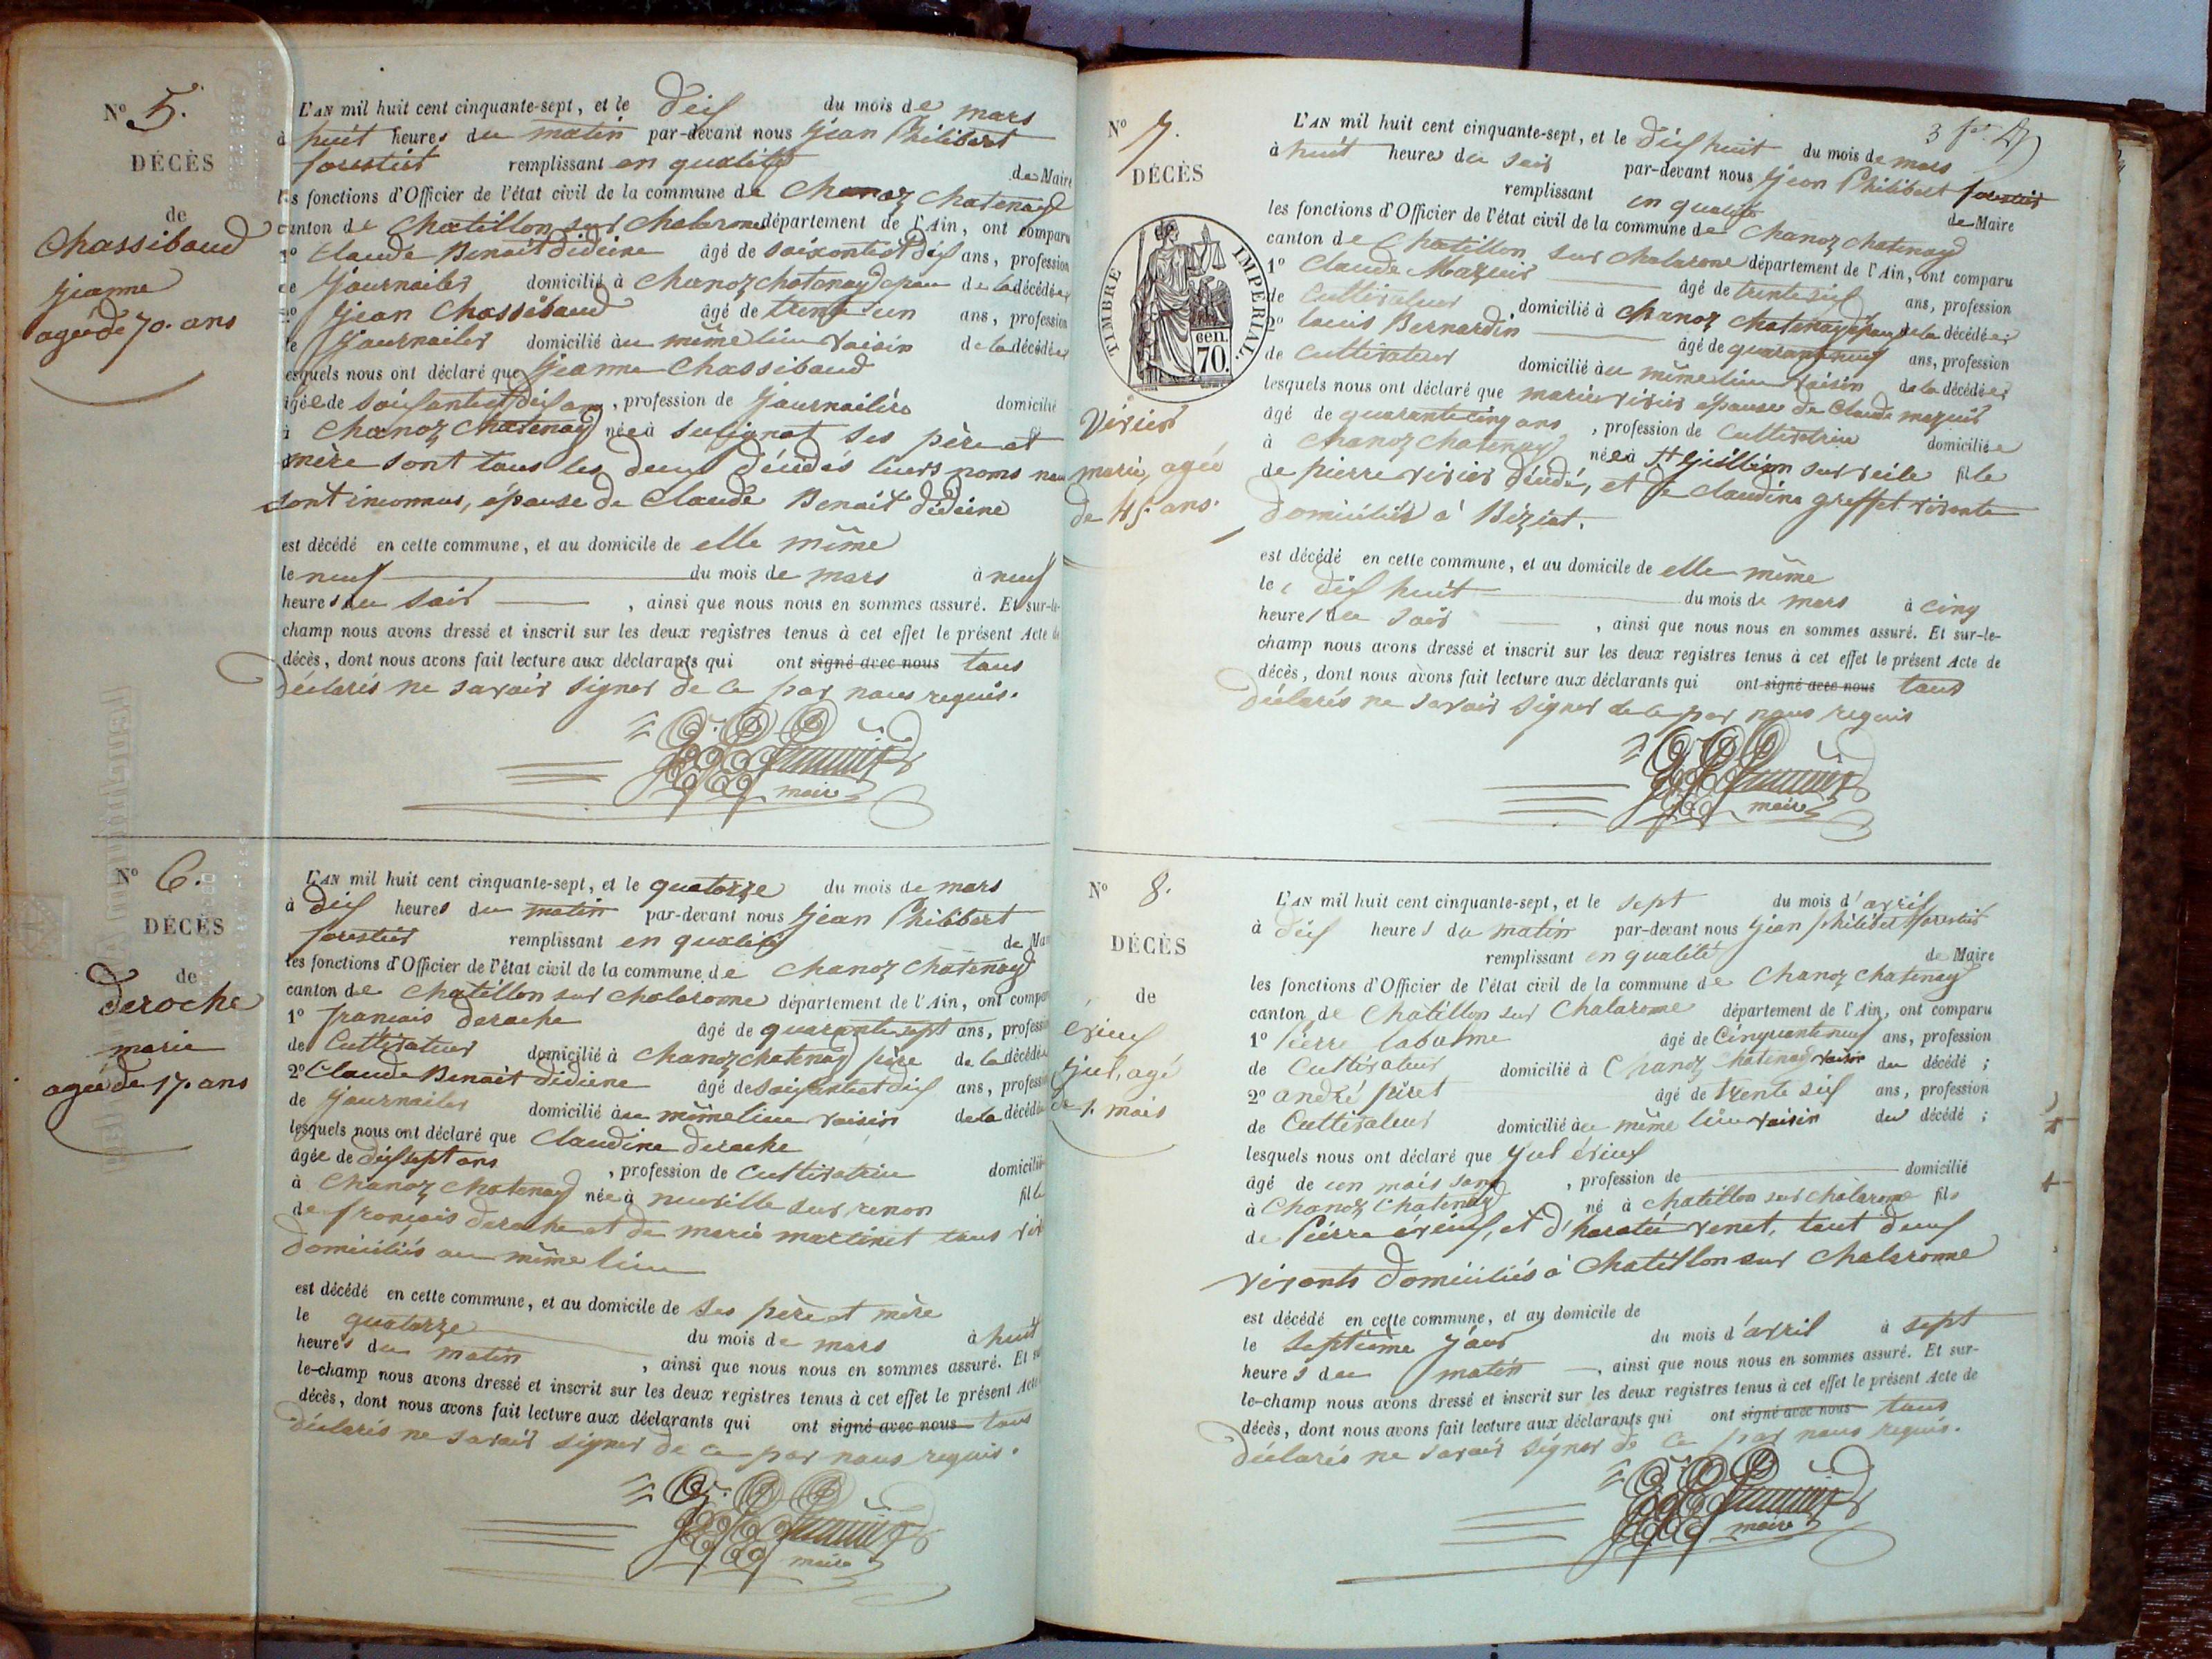 N° 5.
DÉCÈS
de
Chassibaud
Jeanne
agée de 70. ans
L'AN mil huit cent cinquante-sept, et le dix du mois de mars
à huit heures du matin par-devant nous Jean Philibert
forestier remplissant en qualité de Maire
les fonctions d'Officier de l'état civil de la commune de Chanoz Chatenay
canton de Chatillon sur Chalaronne département de l'Ain, ont comparu
1° Claude Benoit didiene âgé de soixante et dix ans, profession
de Journalier domicilié à Chanoz chatenay epoux de la décédée
2° Jean Chassibaud âgé de trente un ans, profession
de Journalier domicilié au même lieu voisin de la décédée
lesquels nous ont déclaré que Jeanne Chassibaud
âgée de soixante et dix ans, profession de Journalière domicilié
à Chanoz Chatenay née à Sulignat ses père et
mère sont tous les deux décédés leurs noms nous
sont inconnus, épouse de Claude Benoit didiene
est décédé en cette commune, et au domicile de elle même
le neuf du mois de mars à neuf
heures du soir, ainsi que nous nous en sommes assuré. Et sur-le-
champ nous avons dressé et inscrit sur les deux registres tenus à cet effet le présent Acte de
décès, dont nous avons fait lecture aux déclarants qui ont signé avec nous tous
déclarés ne savoir signer de ce par nous requis.
maire
N° 6.
DÉCÈS
de
deroche
marie
agée de 17. ans
L'AN mil huit cent cinquante-sept, et le quatorze du mois de mars
à dix heures du matin par-devant nous Jean Philibert
forestier remplissant en qualité de Mai
les fonctions d'Officier de l'état civil de la commune de Chanoz Chatenay
canton de Chatillon sur Chalaronne département de l'Ain, ont compar
1° françois deroche âgé de quarante sept ans, profession
de Cultivateur domicilié à Chanoz chatenay père de la décédée
2° Claude Benoit didiene âgé de soixante et dix ans, profession
de Journalier domicilié au même lieu voisin de la décédée
lesquels nous ont déclaré que Claudine deroche
âgée de dix sept ans, profession de Cultivatrice domiciliée
à Chanoz Chatenay née à neuville sur renon fille
de françois deroche et de marie martinet tous viv
domiciliés au même lieu
est décédé en cette commune, et au domicile de ses père et mère
le quatorze du mois de mars à huit
heures du matin, ainsi que nous nous en sommes assuré. Et sur
le-champ nous avons dressé et inscrit sur les deux registres tenus à cet effet le présent Acte
décès, dont nous avons fait lecture aux déclarants qui ont signé avec nous tous
déclarés ne savoir signer de ce par nous requis.
maire
3 fe
N° 7.
DÉCÈS
TIMBRE IMPERIAL.
cen.
70.
Vivier
marie, agée
de 45. ans.
L'AN mil huit cent cinquante-sept, et le dix huit du mois de mars
à huit heures du soir par-devant nous Jean Philibert forestier
remplissant en qualité de Maire
les fonctions d'Officier de l'état civil de la commune de Chanoz chatenay
canton de Chatillon sur chalarone département de l'Ain, ont comparu
1° Claude Mazuir âgé de trente six ans, profession
de Cultivateur, domicilié à Chanoz Chatenay époux de la décédée
2° louis Bernardin âgé de quarante neuf ans, profession
de Cultivateur domicilié au même lieu voisin de la décédée
lesquels nous ont déclaré que marie vivier épouse de Claude mazuir
âgé de quarante cinq ans, profession de Cultivatrice domiciliée
à Chanoz Chatenay née à St Julien sur veile fille
de pierre vivier décédé, et de claudine greffet vivante
domiciliés à Biziat.
est décédé en cette commune, et au domicile de elle même
le dix huit du mois de mars à cinq
heures du soir, ainsi que nous nous en sommes assuré. Et sur-le-
champ nous avons dressé et inscrit sur les deux registres tenus à cet effet le présent Acte de
décès, dont nous avons fait lecture aux déclarants qui ont signé avec nous tous
déclarés ne savoir signer de ce par nous requis
maire
N° 8.
DÉCÈS
de
érieux
Jul, agé
de 1. mois
L'AN mil huit cent cinquante-sept, et le sept du mois d'avril
à dix heures du matin par-devant nous Jean philibert forestier
remplissant en qualité de Maire
les fonctions d'Officier de l'état civil de la commune de Chanoz Chatenay
canton de Chatillon sur Chalaronne département de l'Ain, ont comparu
1° Pierre labalme âgé de Cinquante neuf ans, profession
de Cultivateur domicilié à Chanoz Chatenay voisin du décédé ;
2° andré piret âgé de trente six ans, profession
de Cultivateur domicilié au même lieu voisin du décédé ;
lesquels nous ont déclaré que Jul érieux
âgé de un mois sans, profession de domicilié
à Chanoz Chatenay né à Chatillon sur chalaronne fils
de Pierre érieux, et d' venet, tout deux
vivants domiciliés à Chatillon sur Chalaronne
est décédé en cette commune, et au domicile de
le septième jour du mois d'avril à sept
heures du matin, ainsi que nous nous en sommes assuré. Et sur-
le-champ nous avons dressé et inscrit sur les deux registres tenus à cet effet le présent Acte de
décès, dont nous avons fait lecture aux déclarants qui ont signé avec nous tous
déclarés ne savoir signer de ce par nous requis.
maire